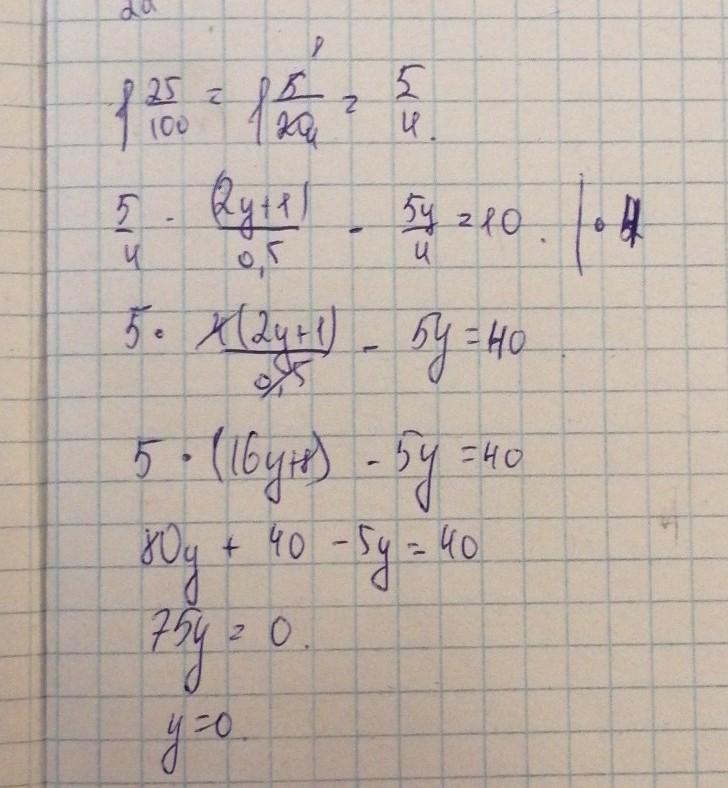 20
1 25/100 = 1 5/20 = 5/4.
5/4 · (2y+1)/0,5 - 5y/4 = 10. | · 4
5 · 4(2y+1)/0,5 - 5y = 40
5 · (16y+8) - 5y = 40
80y + 40 - 5y = 40
75y = 0.
y = 0.